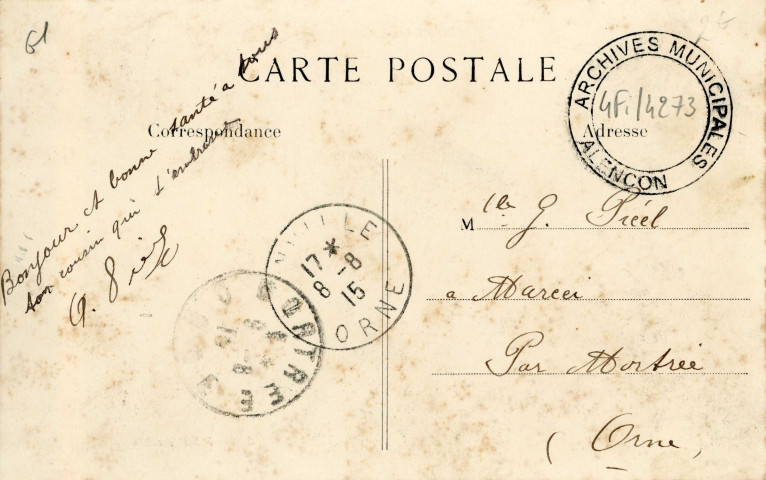 61
CARTE POSTALE
Correspondance
Adresse
ARCHIVES MUNICIPALES
4Fi/4273
ALENÇON
Bonjour et bonne santé a tous
ton cousin qui t'embrasse
M lle G.
a Marcei
Par Mortrée
(Orne,
17 * 8-8 15
ORNE
MORTREE